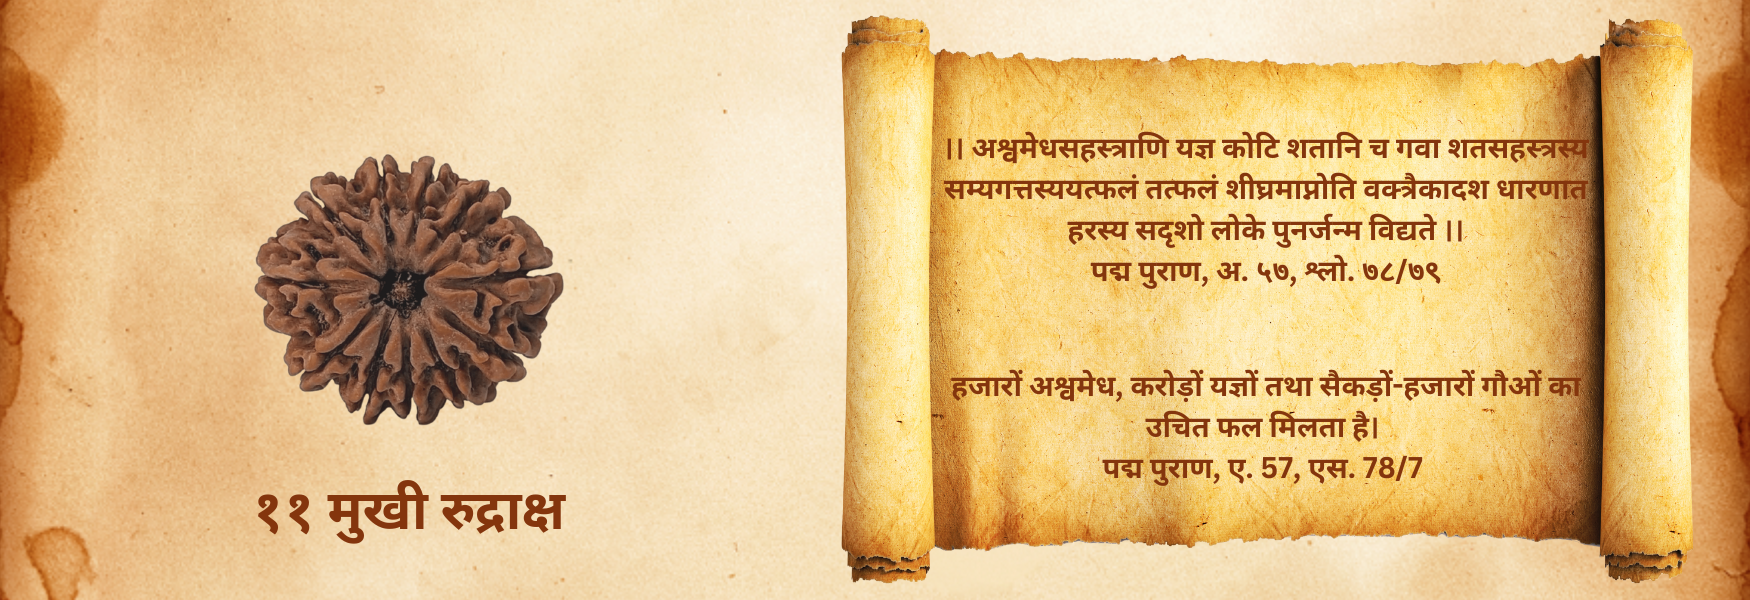 ११ मुखी रुद्राक्ष
।। अश्वमेधसहस्त्राणि यज्ञ कोटि शतानि च गवा शतसहस्त्रस्य
सम्यगत्तस्ययत्फलं तत्फलं शीघ्रमाप्नोति वक्त्रैकादश धारणात
हरस्य सदृशो लोके पुनर्जन्म विद्यते ।।
पद्म पुराण, अ. ५७, श्लो. ७८/७९
हजारों अश्वमेध, करोड़ों यज्ञों तथा सैकड़ों-हजारों गौओं का
उचित फल मिलता है।
पद्म पुराण, ए. 57, एस. 78/7